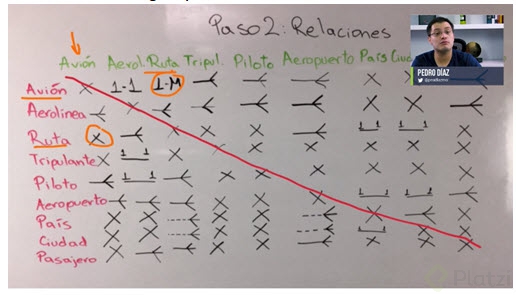 Paso 2: Relaciones
Avión Aerol. Ruta Tripul. Piloto Aeropuerto País Ciud
PEDRO DÍAZ
Avión X 1-1 1-M
Aerolínea
Ruta X
Tripulante X
Piloto
Aeropuerto
País
Ciudad
Pasajero
Platzi